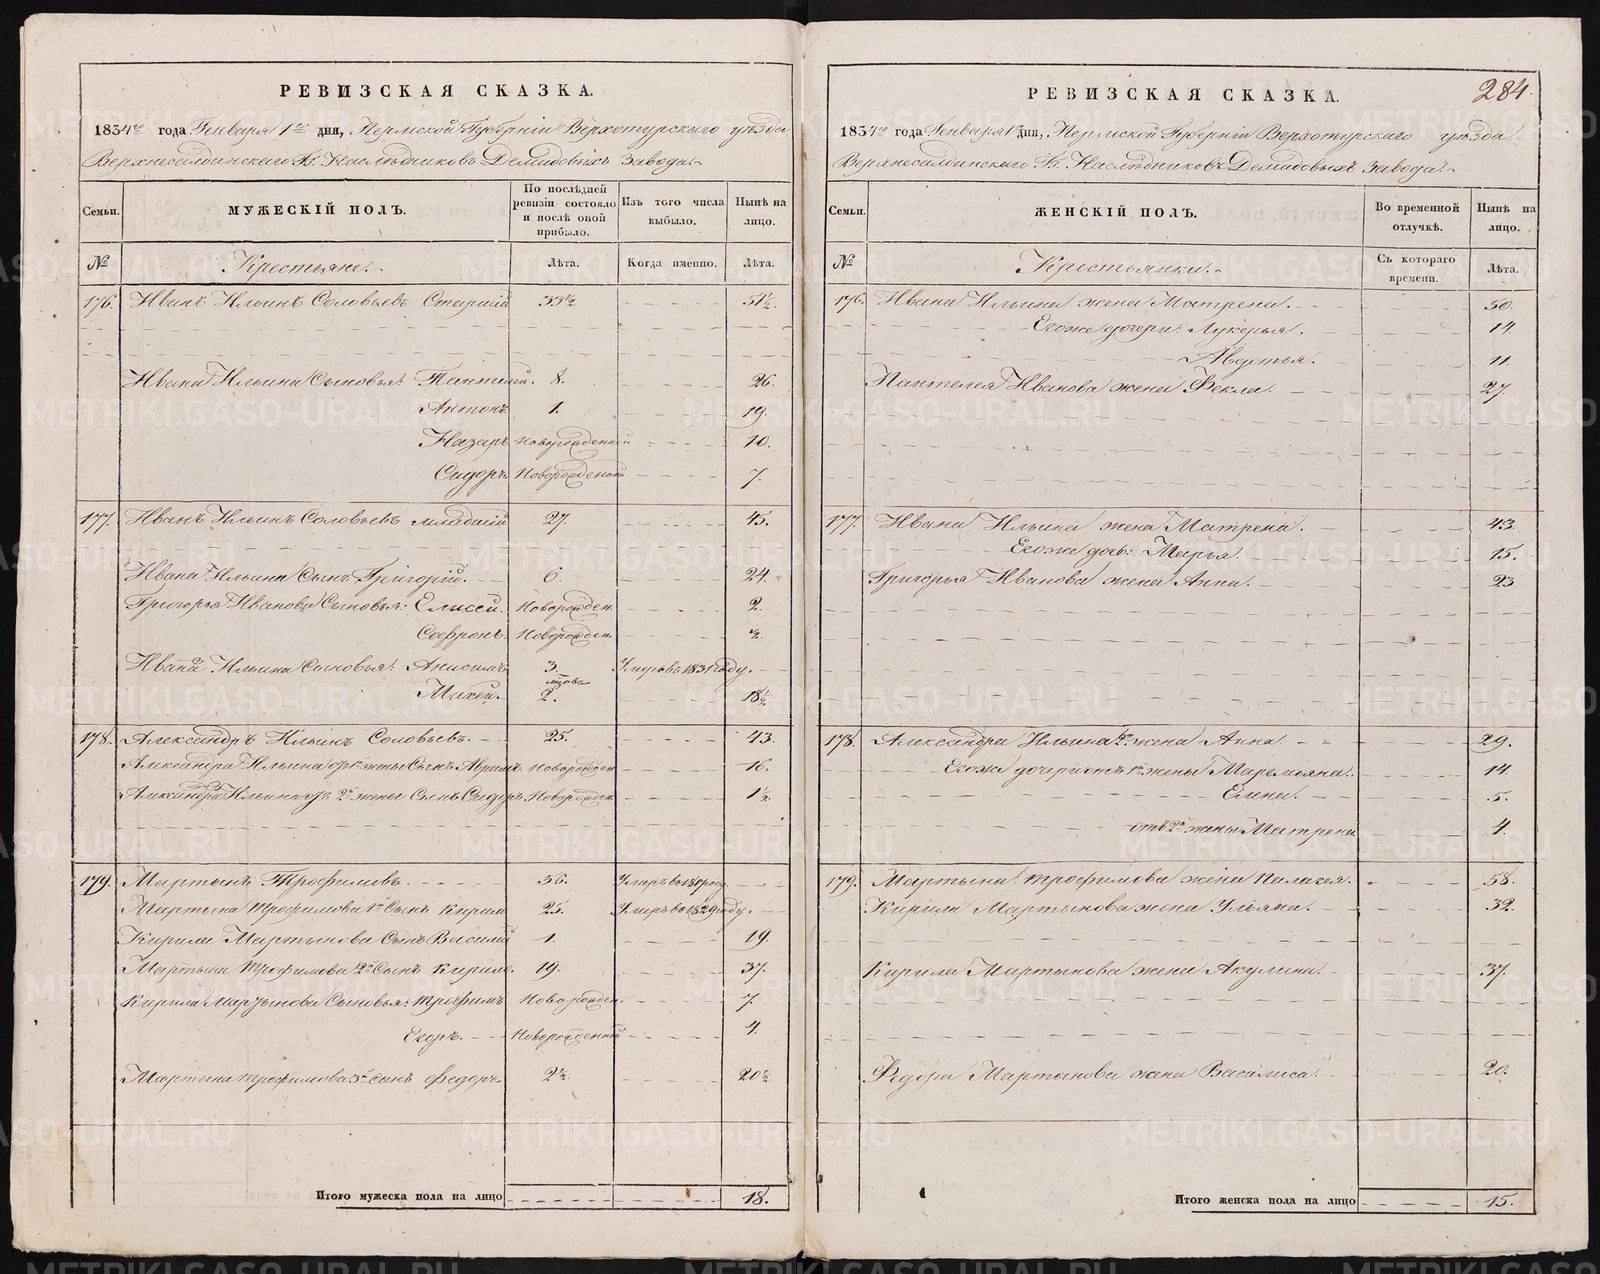 РЕВИЗСКАЯ СКАЗКА.
1834го года Генваря 1го дня, Пермской Губерніи Верхотурскаго уѣзда
Верхнесалдинскаго Гг. Наслѣдниковъ Демидовыхъ Завода.
Семьи. МУЖЕСКІЙ ПОЛЪ. По послѣдней ревизіи состояло и послѣ оной прибыло. Изъ того числа выбыло. Нынѣ на лицо.
№ Крестьяне. Лѣта. Когда именно. Лѣта.
176. Иванъ Ильинъ Соловьевъ Старшій 33½ 51½.
Ивана Ильина Сыновья: Пантелей. 8. 26.
Антонъ 1. 19.
Назаръ Новорожденной 10.
Сидоръ Новорожденной 7.
177. Иванъ Ильинъ Соловьевъ младшій 27. 45.
Ивана Ильина Сынъ Григорій. 6. 24.
Григорья Иванова Сыновья: Елисей. Новорожден. 2.
Софронъ. Новорожден. ½.
Ивана Ильина Сыновья: Анисимъ 3. Умеръ въ 1831 году.
Михей. 2. мѣсяцовъ 18½.
178. Александръ Ильинъ Соловьевъ. 25. 43.
Александра Ильина отъ 1й жены Сынъ Авраамъ Новорожден 16.
Александра Ильина отъ 2й жены Сынъ Сидоръ Новорожден. 1½.
179. Мартынъ Трофимовъ. 36. Умеръ въ году.
Мартына Трофимова 1й Сынъ Кирилъ 25. Умеръ въ 1829 году.
Кирила Мартынова Сынъ Василій 1. 19.
Мартына Трофимова 2й Сынъ Кирилъ. 19. 37.
Кирила Мартынова Сыновья: Трофимъ Новорожден. 7.
Егоръ. Новорожденной 4.
Мартына Трофимова 3й сынъ Федоръ. 2½. 20½.
Итого мужеска пола на лицо 18.
284.
РЕВИЗСКАЯ СКАЗКА.
1834го года Генваря 1го дня, Пермской Губерніи Верхотурскаго уѣзда
Верхнесалдинскаго Гг. Наслѣдниковъ Демидовыхъ Завода.
Семьи. ЖЕНСКІЙ ПОЛЪ. Во временной отлучкѣ. Нынѣ на лицо.
№ Крестьянки. Съ котораго времени. Лѣта.
176. Ивана Ильина жена Матрена. 50.
Егоже дочери: Лукерья. 14.
Авдотья. 11.
Пантелея Иванова жена Фекла. 27.
177. Ивана Ильина жена Матрена. 43.
Егоже дочь: Марья. 15.
Григорья Иванова жена Анна. 23
178. Александра Ильина 2я жена Анна 29.
Егоже дочери отъ 1й жены Маремьяна. 14.
Елена. 5.
отъ 2й жены Матрена 4.
179. Мартына Трофимова жена Палагея. 58.
Кирила Мартынова жена Ульяна. 32.
Кирила Мартынова жена Акулина. 37.
Федора Мартынова жена Василиса. 20.
Итого женска пола на лицо 15.
METRIKI.GASO-URAL.RU